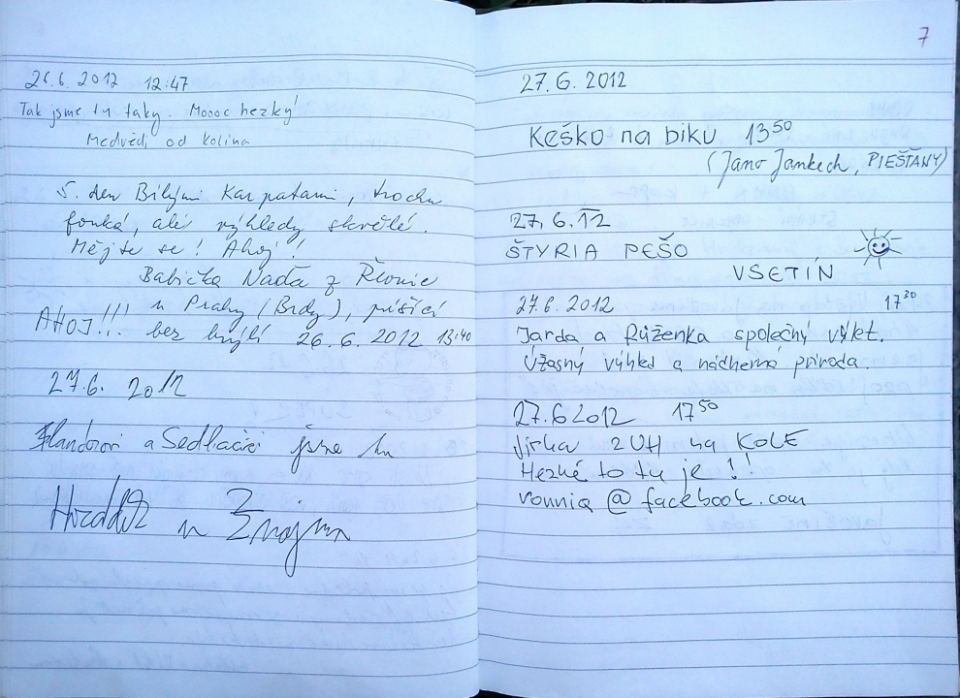 26.6. 2012 12:47
Tak jsme tu taky. Moooc hezký!
Medvědi od Kolína
5. den Bílými Karpatami, trochu
fouká, ale výhledy skvělé.
Mějte se! Ahoj!
Babička Naďa z Řevnic
u Prahy (Brdy), píšící
AHOJ!!! bez brýlí 26.6. 2012 13:40
27.6. 2012
a Sedláčci jsme tu
u Znojma
7
27.6. 2012
Keško na biku 13⁵⁰
(Jano Jankech, PIEŠŤANY)
27.6.12
ŠTYRIA PEŠO
VSETÍN
27.6. 2012 17³⁰
Jarda a Růženka společný výlet.
Úžasný výhled a nádherná príroda.
27.6 2012 17⁵⁰
Jirka z UH na KOLE
Hezké to tu je!!
vonnia@facebook.com